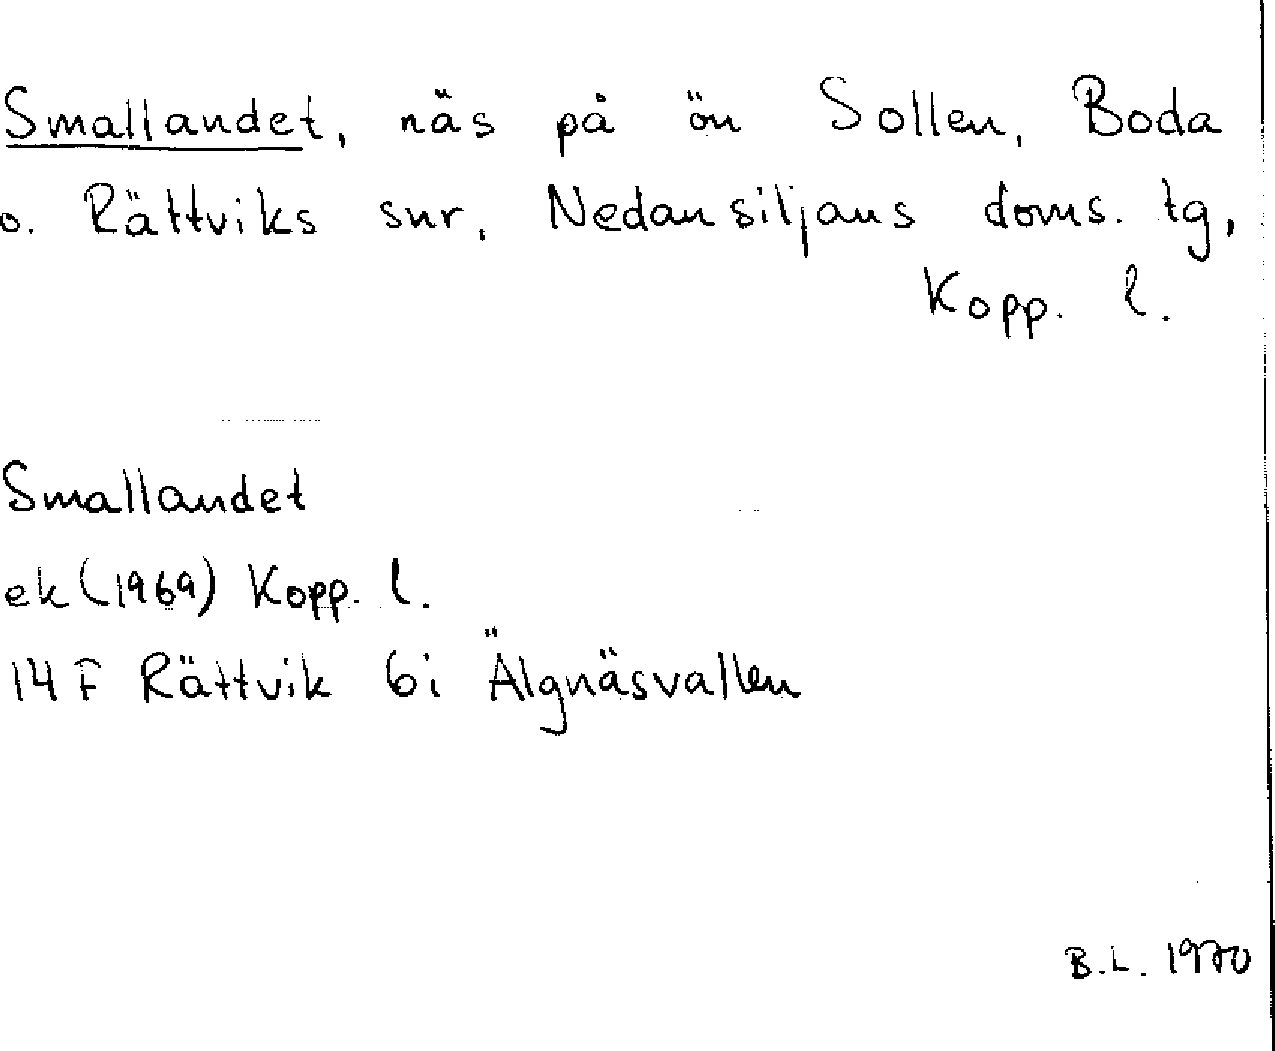 Smallandet, näs på ön Sollen, Boda
o. Rättviks snr, Nedansiljans doms. tg,
Kopp. l.
Smallandet
ek (1969) Kopp. l.
14 F Rättvik 6i Älgnäsvallen
B.L. 1970